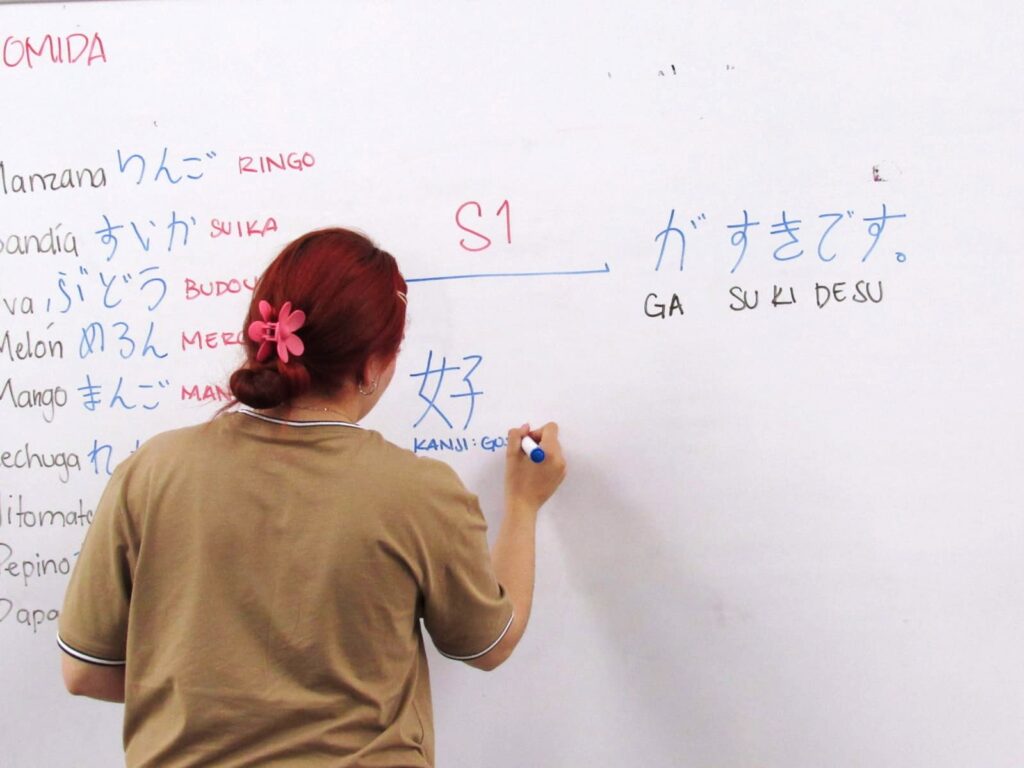 OMIDA
Manzana りんご RINGO
Sandía すいか SUIKA
Uva ぶどう BUDOU
Melón めろん MERO
Mango まんご MAN
Lechuga れ
Jitomate
Pepino
Papa
S1
がすきです。
GA SUKI DESU
好
KANJI: GUS